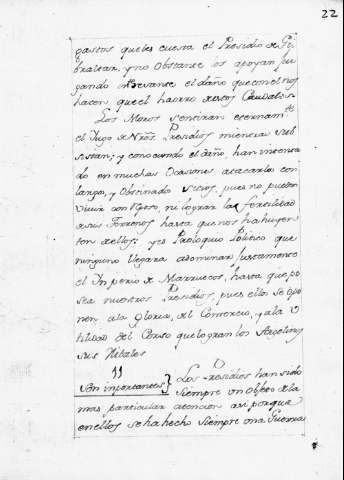 22
gastos que les cuesta el Presidio de Gi
braltar, y no obstante los apoyan juz
gando interesante el daño que con el nos
hacen que el haorro de estos Caudales.
Los Moros sentiran eternamte
el Jugo de Nros Presidios mientras sub
sistan; y conociendo el daño, han intenta
do en muchas Ocasiones atacarlos con
largos, y Obstinados Sitios, pues no pueden
vivir con reposo, ni lograr la fertilidad
de sus Terrenos hasta que nos hahuyen
ten de ellos; y es Proloquio Politico que
ninguno llegara a dominar justamente
el Imperio de Marruecos, hasta que po
sea nuestros Presidios, pues ellos se opo
nen a la Gloria, al Comercio, y a la U
tilidad del Corso que logran los Argelinos
sus Rivales
11
Son inportantes} Los Presidios han sido
Siempre un Objeto de la
mas particular atencion asi porque
en ellos se ha hecho Siempre una Guerra